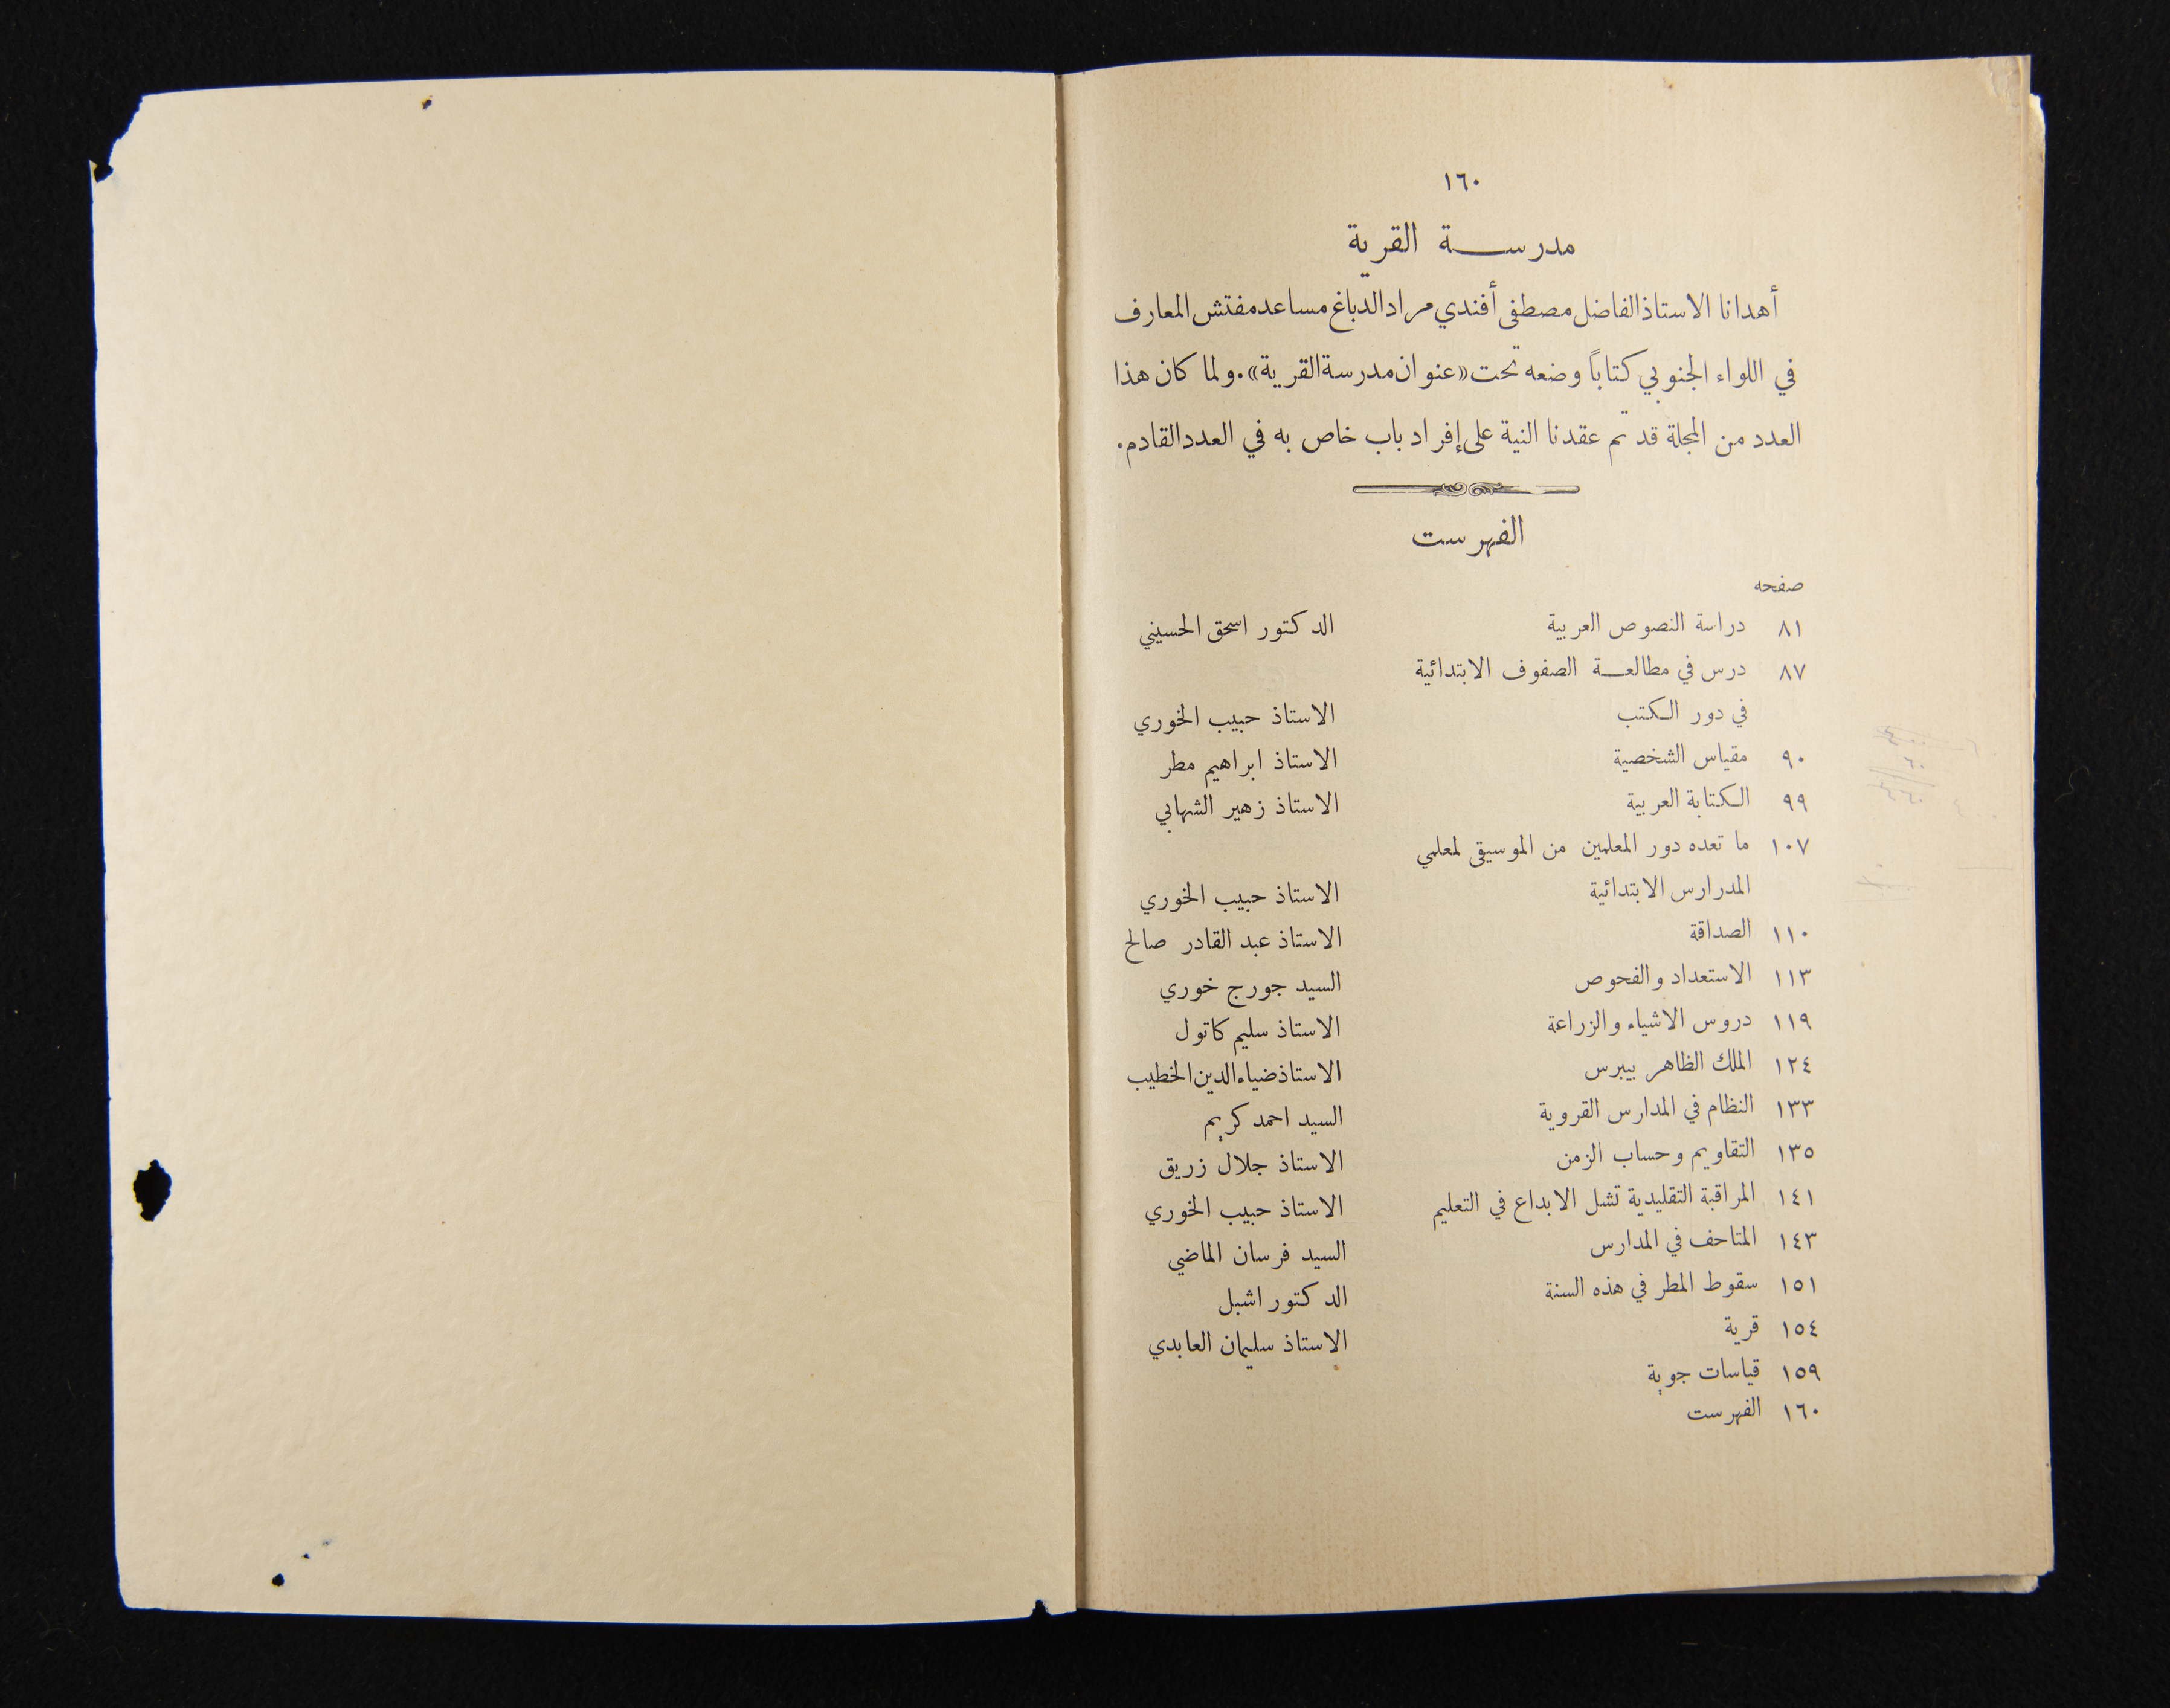 ١٦٠
مدرســة القرية
أهدانا الاستاذ الفاضل مصطفى أفندي مراد الدباغ مساعد مفتش المعارف
في اللواء الجنوبي كتاباً وضعه تحت «عنوان مدرسة القرية». ولما كان هذا
العدد من المجلة قد تم عقدنا النية على إفراد باب خاص به في العدد القادم.
الفهرست
صفحه
٨١ دراسة النصوص العربية الدكتور اسحق الحسيني
٨٧ درس في مطالعــة الصفوف الابتدائية
في دور الكتب الاستاذ حبيب الخوري
٩٠ مقياس الشخصية الاستاذ ابراهيم مطر
٩٩ الكتابة العربية الاستاذ زهير الشهابي
١٠٧ ما تعده دور المعلمين من الموسيقى لمعلمي
المدرارس الابتدائية الاستاذ حبيب الخوري
١١٠ الصداقة الاستاذ عبد القادر صالح
١١٣ الاستعداد والفحوص السيد جورج خوري
١١٩ دروس الاشياء والزراعة الاستاذ سليم كاتول
١٢٤ الملك الظاهر بيبرس الاستاذ ضياء الدين الخطيب
١٣٣ النظام في المدارس القروية السيد احمد كريم
١٣٥ التقاويم وحساب الزمن الاستاذ جلال زريق
١٤١ المراقبة التقليدية تشل الابداع في التعليم الاستاذ حبيب الخوري
١٤٣ المتاحف في المدارس السيد فرسان الماضي
١٥١ سقوط المطر في هذه السنة الدكتور اشبل
١٥٤ قرية الاستاذ سليمان العابدي
١٥٩ قياسات جوية
١٦٠ الفهرست